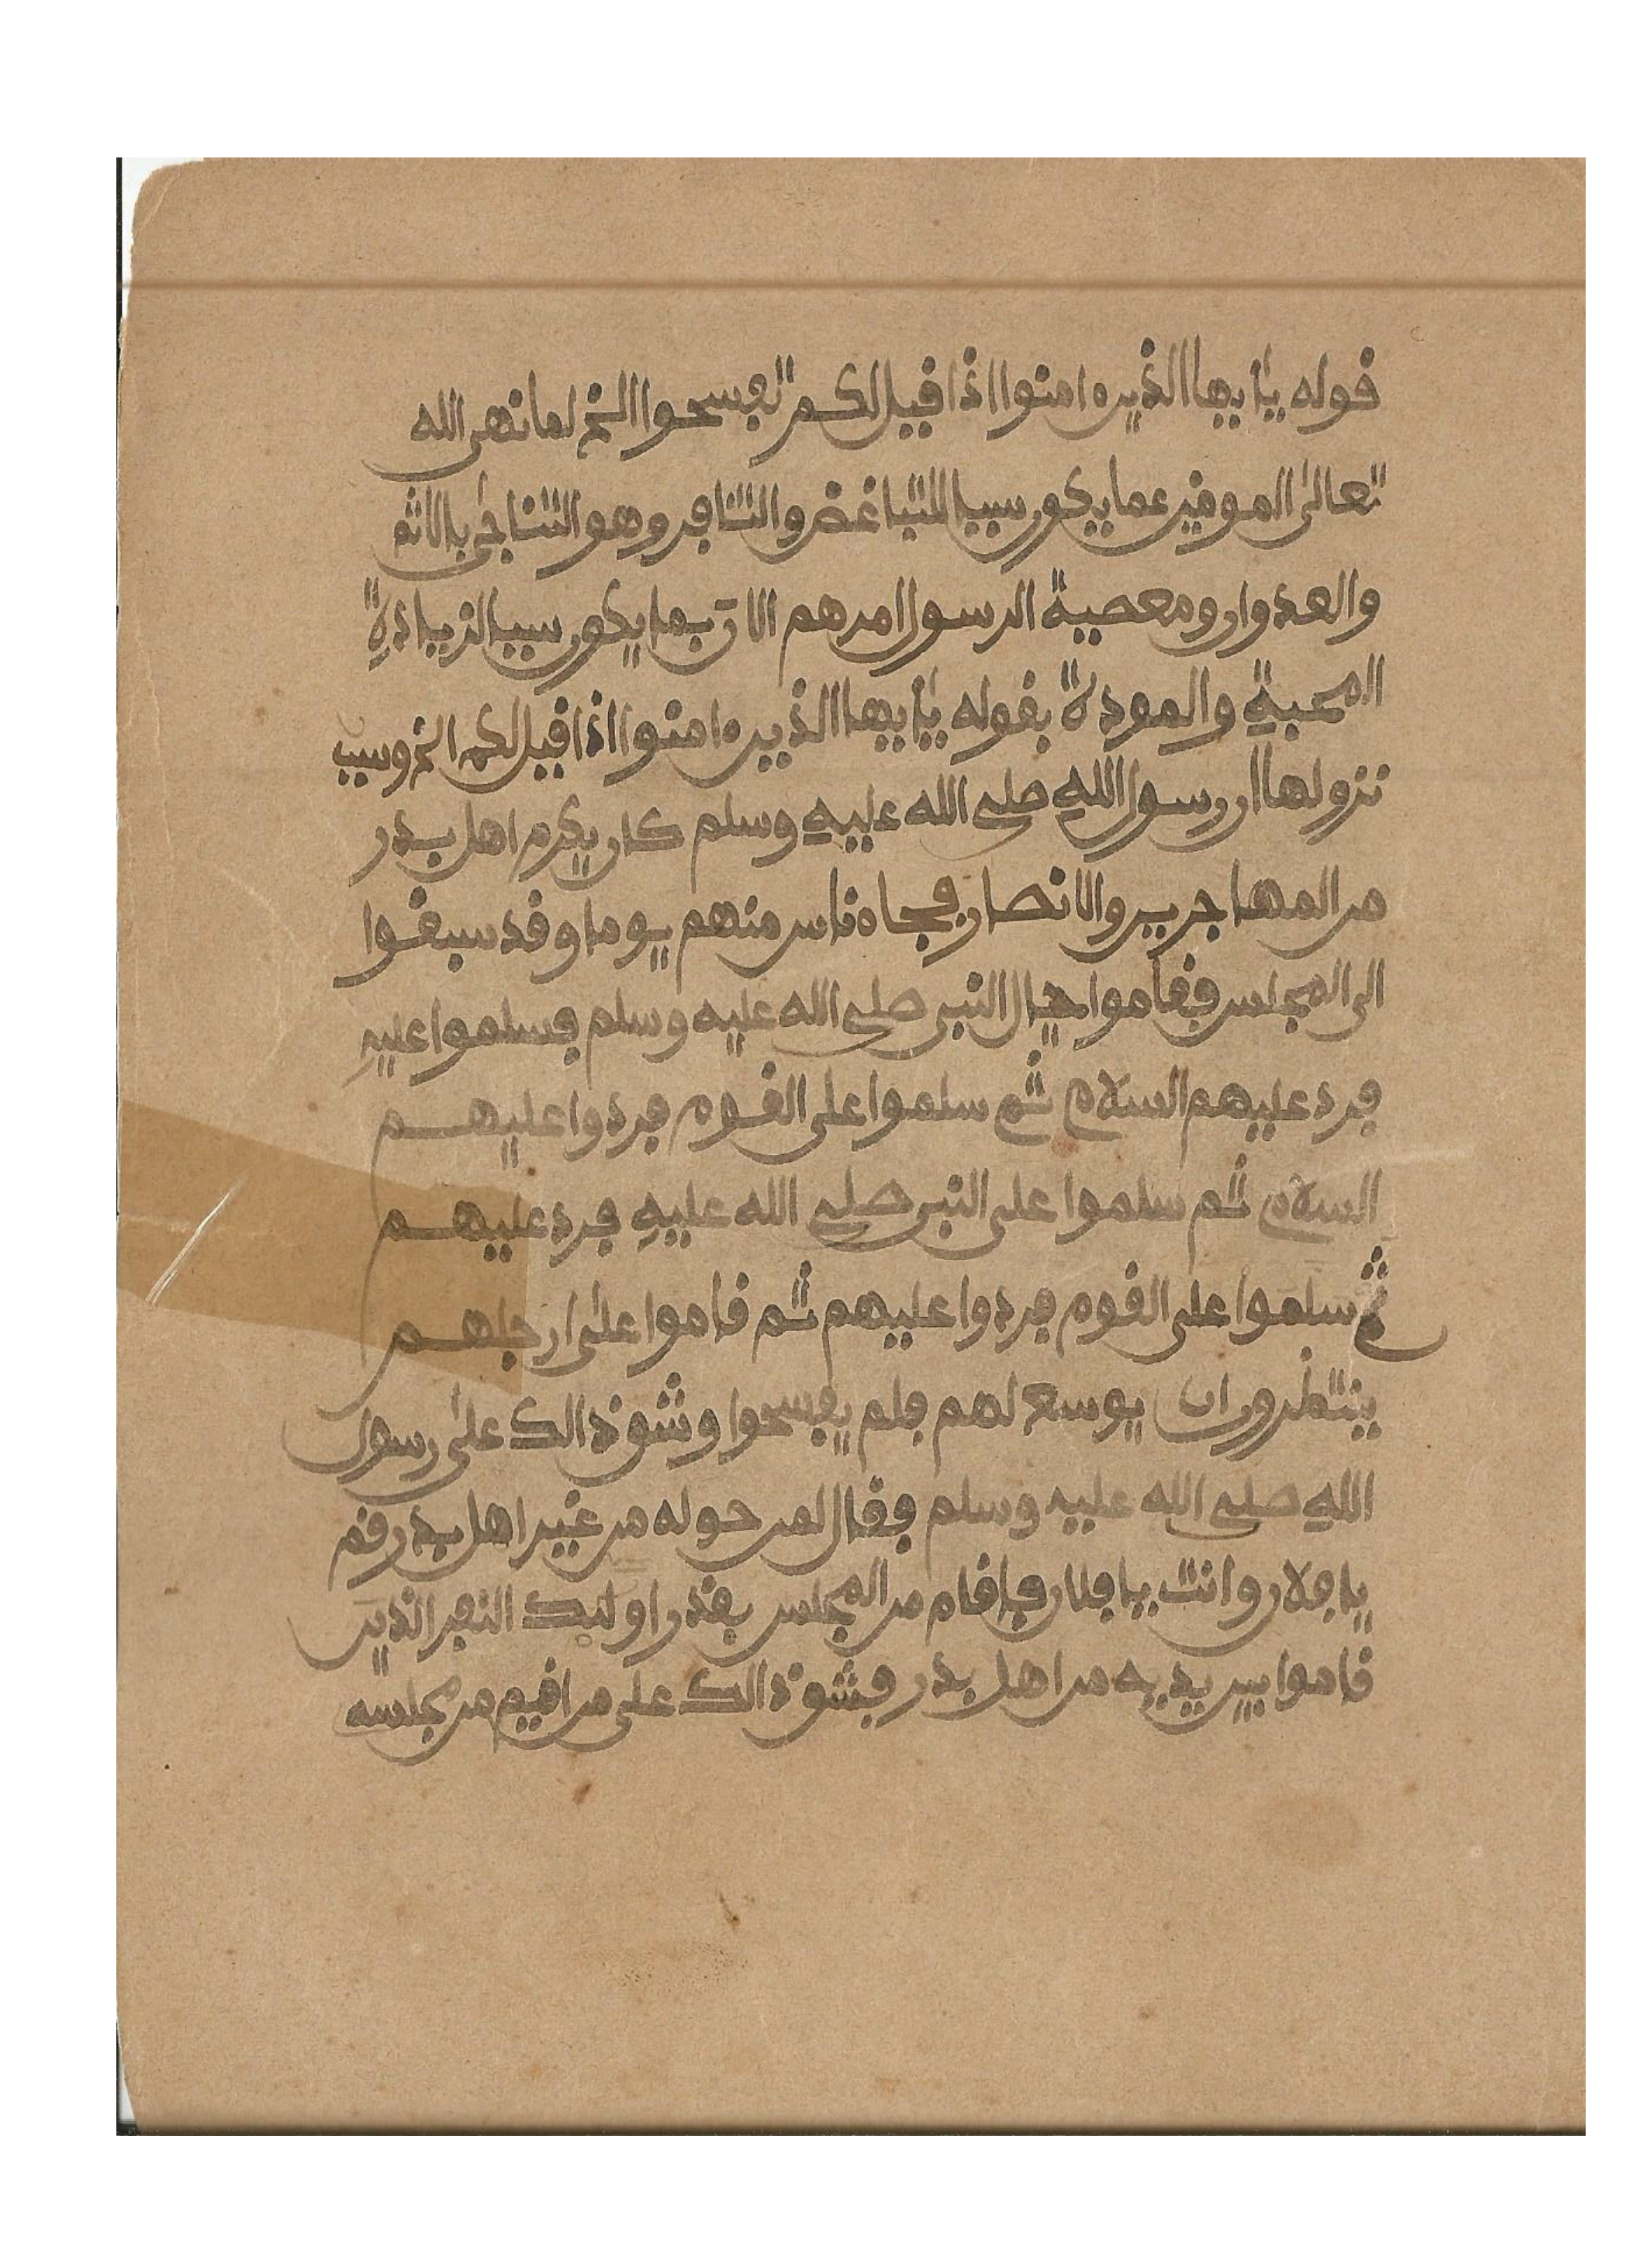 قوله يٰأيها الذين ءامنوا اذا قيل لكم تفسحوا الخ لما نهى الله
تعالى الموقين عما يكون سببا للتباغض والتنافر وهو التناجى بالاثم
والعدوان ومعصية الرسول امرهم الان بما يكون سببا لزيادة
المحبة والمودة بقوله يٰأيها الذين ءامنوا اذا قيل لكم الخ وسبب
نزولها ان رسول الله صلى الله عليه وسلم كان يكرم اهل بدر
من المهاجرين والانصار فجاء ناس منهم يوما وقد سبقوا
الى المجلس فقاموا حيال النبى صلى الله عليه وسلم فسلموا عليه
فرد عليهم السلام ثم سلموا على القوم فردوا عليهم
السلام ثم سلموا على النبى صلى الله عليه فرد عليهم
ثم سلموا على القوم فردوا عليهم ثم قاموا على ارجلهم
ينتظرون ان يوسع لهم فلم يفسحوا وشق ذالك على رسول
الله صلى الله عليه وسلم فقال لمن حوله من غير اهل بدر قم
يا فلان وانت يا فلان فاقام من المجلس بقدر اولئك النفر الذين
قاموا بين يديه من اهل بدر فشق ذالك على من اقيم من مجلسه